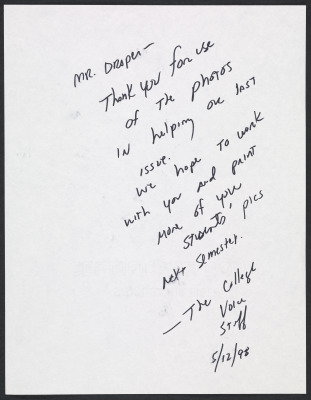 MR. DRAPER—
Thank you for use
of the photos
in helping our last
issue.
We hope to work
with you and print
more of your
students' pics
next semester.
— The College
Voice
Staff
5/12/98